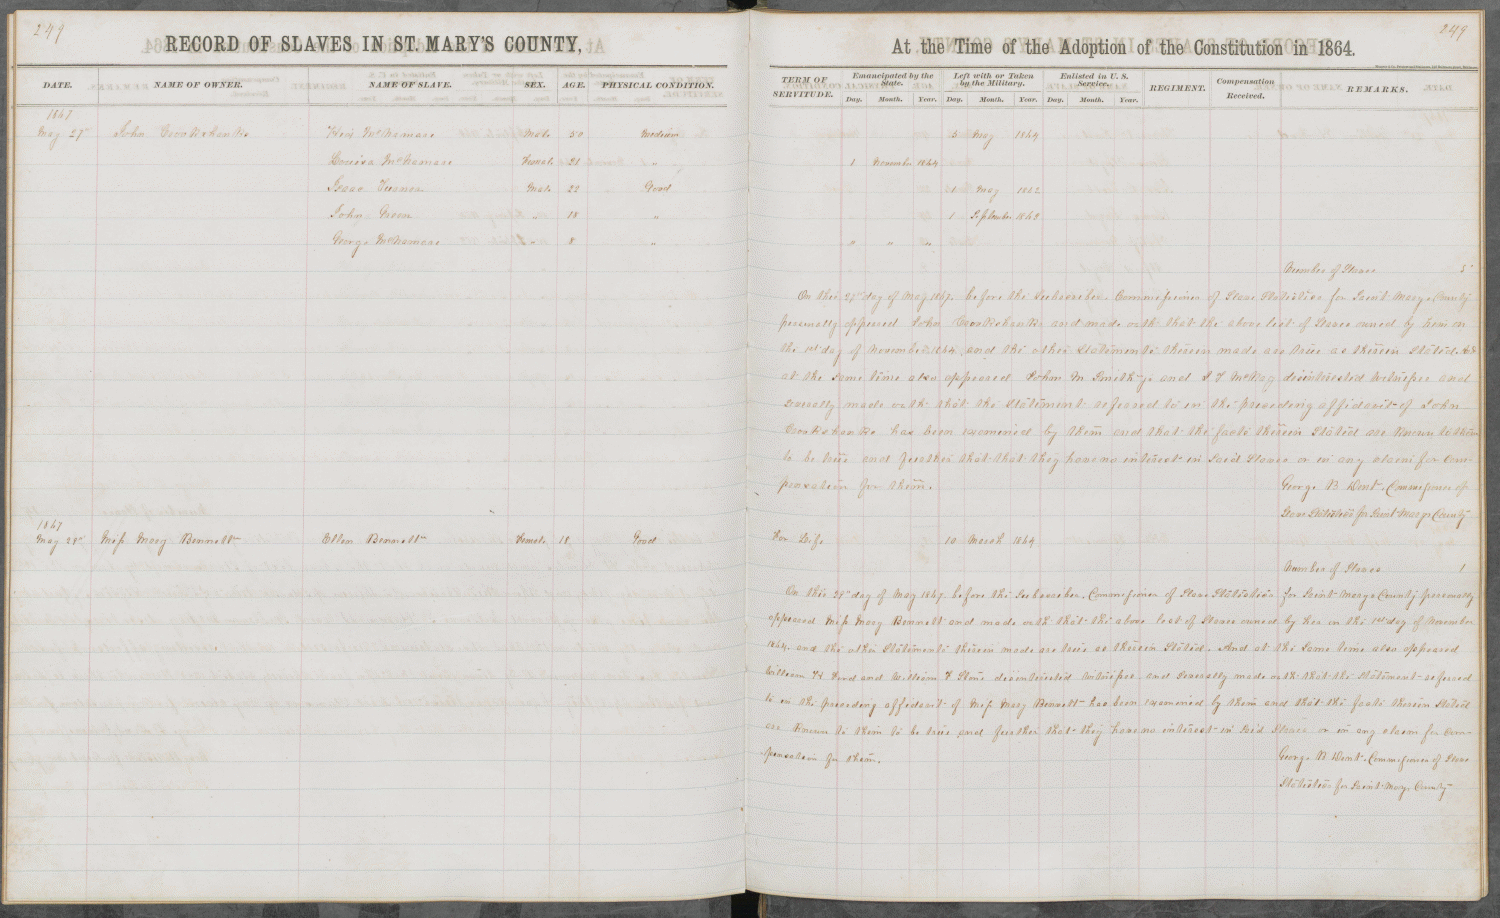 249
249
RECORD OF SLAVES IN ST. MARY'S COUNTY,
At the Time of the Adoption of the Constitution in 1864.
DATE. NAME OF OWNER. NAME OF SLAVE. SEX. AGE. PHYSICAL CONDITION.
TERM OF SERVITUDE. Emancipated by the State. Day. Month. Year. Left with or Taken by the Military. Day. Month. Year. Enlisted in U. S. Service. Day. Month. Year. REGIMENT. Compensation Received. REMARKS.
1867
May 27" John Male 50 Medium 5 May 1864
Louisa McNamara Female 21 " 1 November 1864
Isaac Male 22 Good 1 May 1862
John Green " 18 " 1 September 1862
George McNamara " 8 " " " "
Number of Slaves 5
On this 27" day of May 1867. before the Subscriber Commissioner of Slave Statistics for Saint Marys County
personally appeared John and made oath that the above list of Slaves owned by him on
the 1st day of November 1864, and the other Statements therein made are true as therein Stated. And
at the same time also appeared John M Smith and disinterested witnesses and
severally made oath that the Statement referred to in the preceding affidavit of John
has been examined by them and that the facts therein Stated are Known to them
to be true and further that that they have no interest in Said Slaves or in any claim for com-
pensation for them. George B Dent. Commissioner of
Slave Statistics for Saint Marys County
1867
May 28" Miss Mary Bennett Ellen Bennett Female 18 Good For Life 10 March 1864
Number of Slaves 1
On this 28" day of May 1867. before the Subscriber, Commissioner of Slave Statistics for Saint Marys County personally
appeared Miss Mary Bennett and made oath that the above list of Slaves owned by her on the 1st day of November
1864, and the other Statements therein made are true as therein Stated. And at the Same time also appeared
William and William F Stone disinterested witnesses and Severally made oath that the Statement referred
to in the preceding affidavit of Miss Mary Bennett has been examined by them and that the facts therein Stated
are Known to them to be true and further that they have no interest in Said Slaves or in any claim for Com-
pensation for them. George B Dent. Commissioner of Slave
Statistics for Saint Marys County